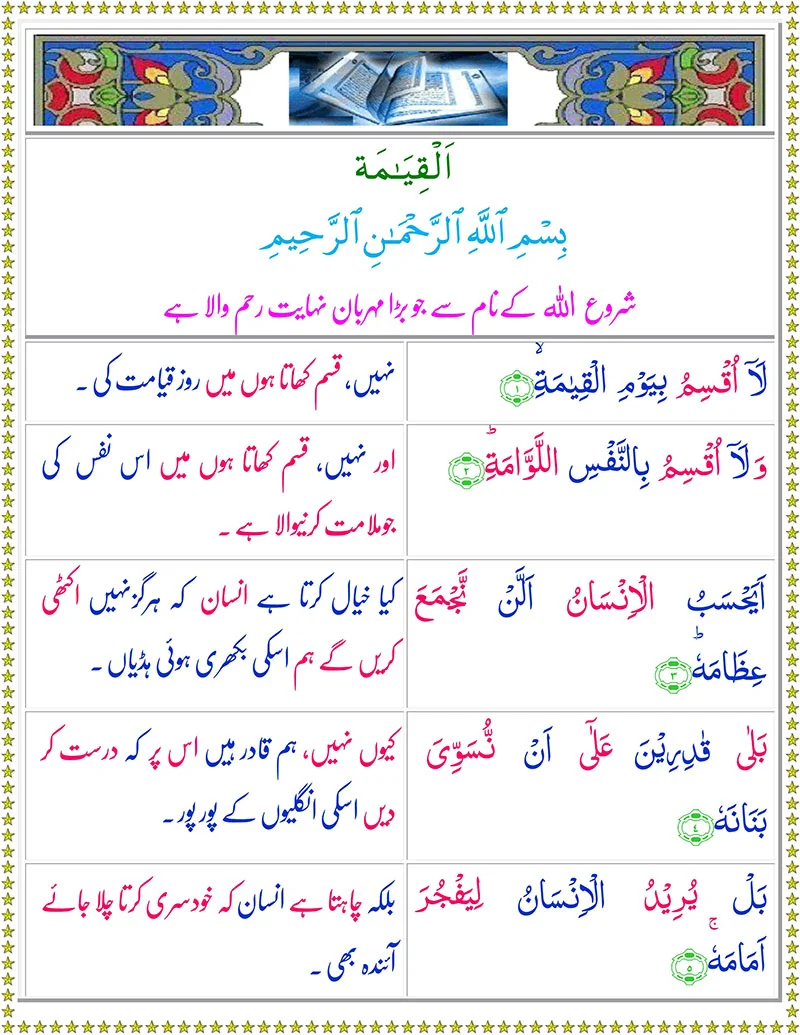 اَلْقِيَـٰمَة
بِسْمِ ٱللَّهِ ٱلرَّحْمَـٰنِ ٱلرَّحِيمِ
شروع اللہ کے نام سے جو بڑا مہربان نہایت رحم والا ہے
لَآ اُقْسِمُ بِيَوْمِ الْقِيٰمَةِۙ ۝١
نہیں، قسم کھاتا ہوں میں روز قیامت کی ۔
وَلَآ اُقْسِمُ بِالنَّفْسِ اللَّوَّامَةِؕ ۝٢
اور نہیں، قسم کھاتا ہوں میں اس نفس کی
جو ملامت کرنیوالا ہے ۔
اَيَحْسَبُ الْاِنْسَانُ اَلَّنْ نَّجْمَعَ
عِظَامَهٗؕ ۝٣
کیا خیال کرتا ہے انسان کہ ہرگز نہیں اکٹھی
کریں گے ہم اسکی بکھری ہوئی ہڈیاں ۔
بَلٰى قٰدِرِيْنَ عَلٰٓى اَنْ نُّسَوِّىَ
بَنَانَهٗ ۝٤
کیوں نہیں، ہم قادر ہیں اس پر کہ درست کر
دیں اسکی انگلیوں کے پور پور ۔
بَلْ يُرِيْدُ الْاِنْسَانُ لِيَفْجُرَ
اَمَامَهٗۚ ۝٥
بلکہ چاہتا ہے انسان کہ خودسری کرتا چلا جائے
آئندہ بھی ۔